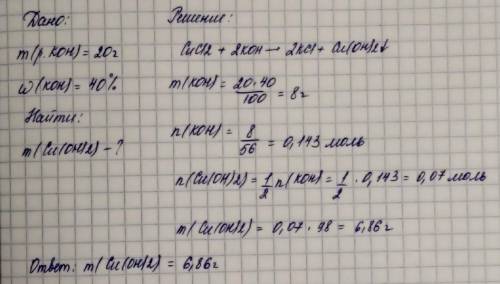 Дано:
m(р. KOH) = 20г
ω(KOH) = 40%
Найти:
m(Cu(OH)2) - ?
Решение:
CuCl2 + 2KOH → 2KCl + Cu(OH)2↓
m(KOH) = 20·40 / 100 = 8г
n(KOH) = 8 / 56 = 0,143 моль
n(Cu(OH)2) = 1/2 n(KOH) = 1/2 · 0,143 = 0,07 моль
m(Cu(OH)2) = 0,07 · 98 = 6,86г
Ответ: m(Cu(OH)2) = 6,86г